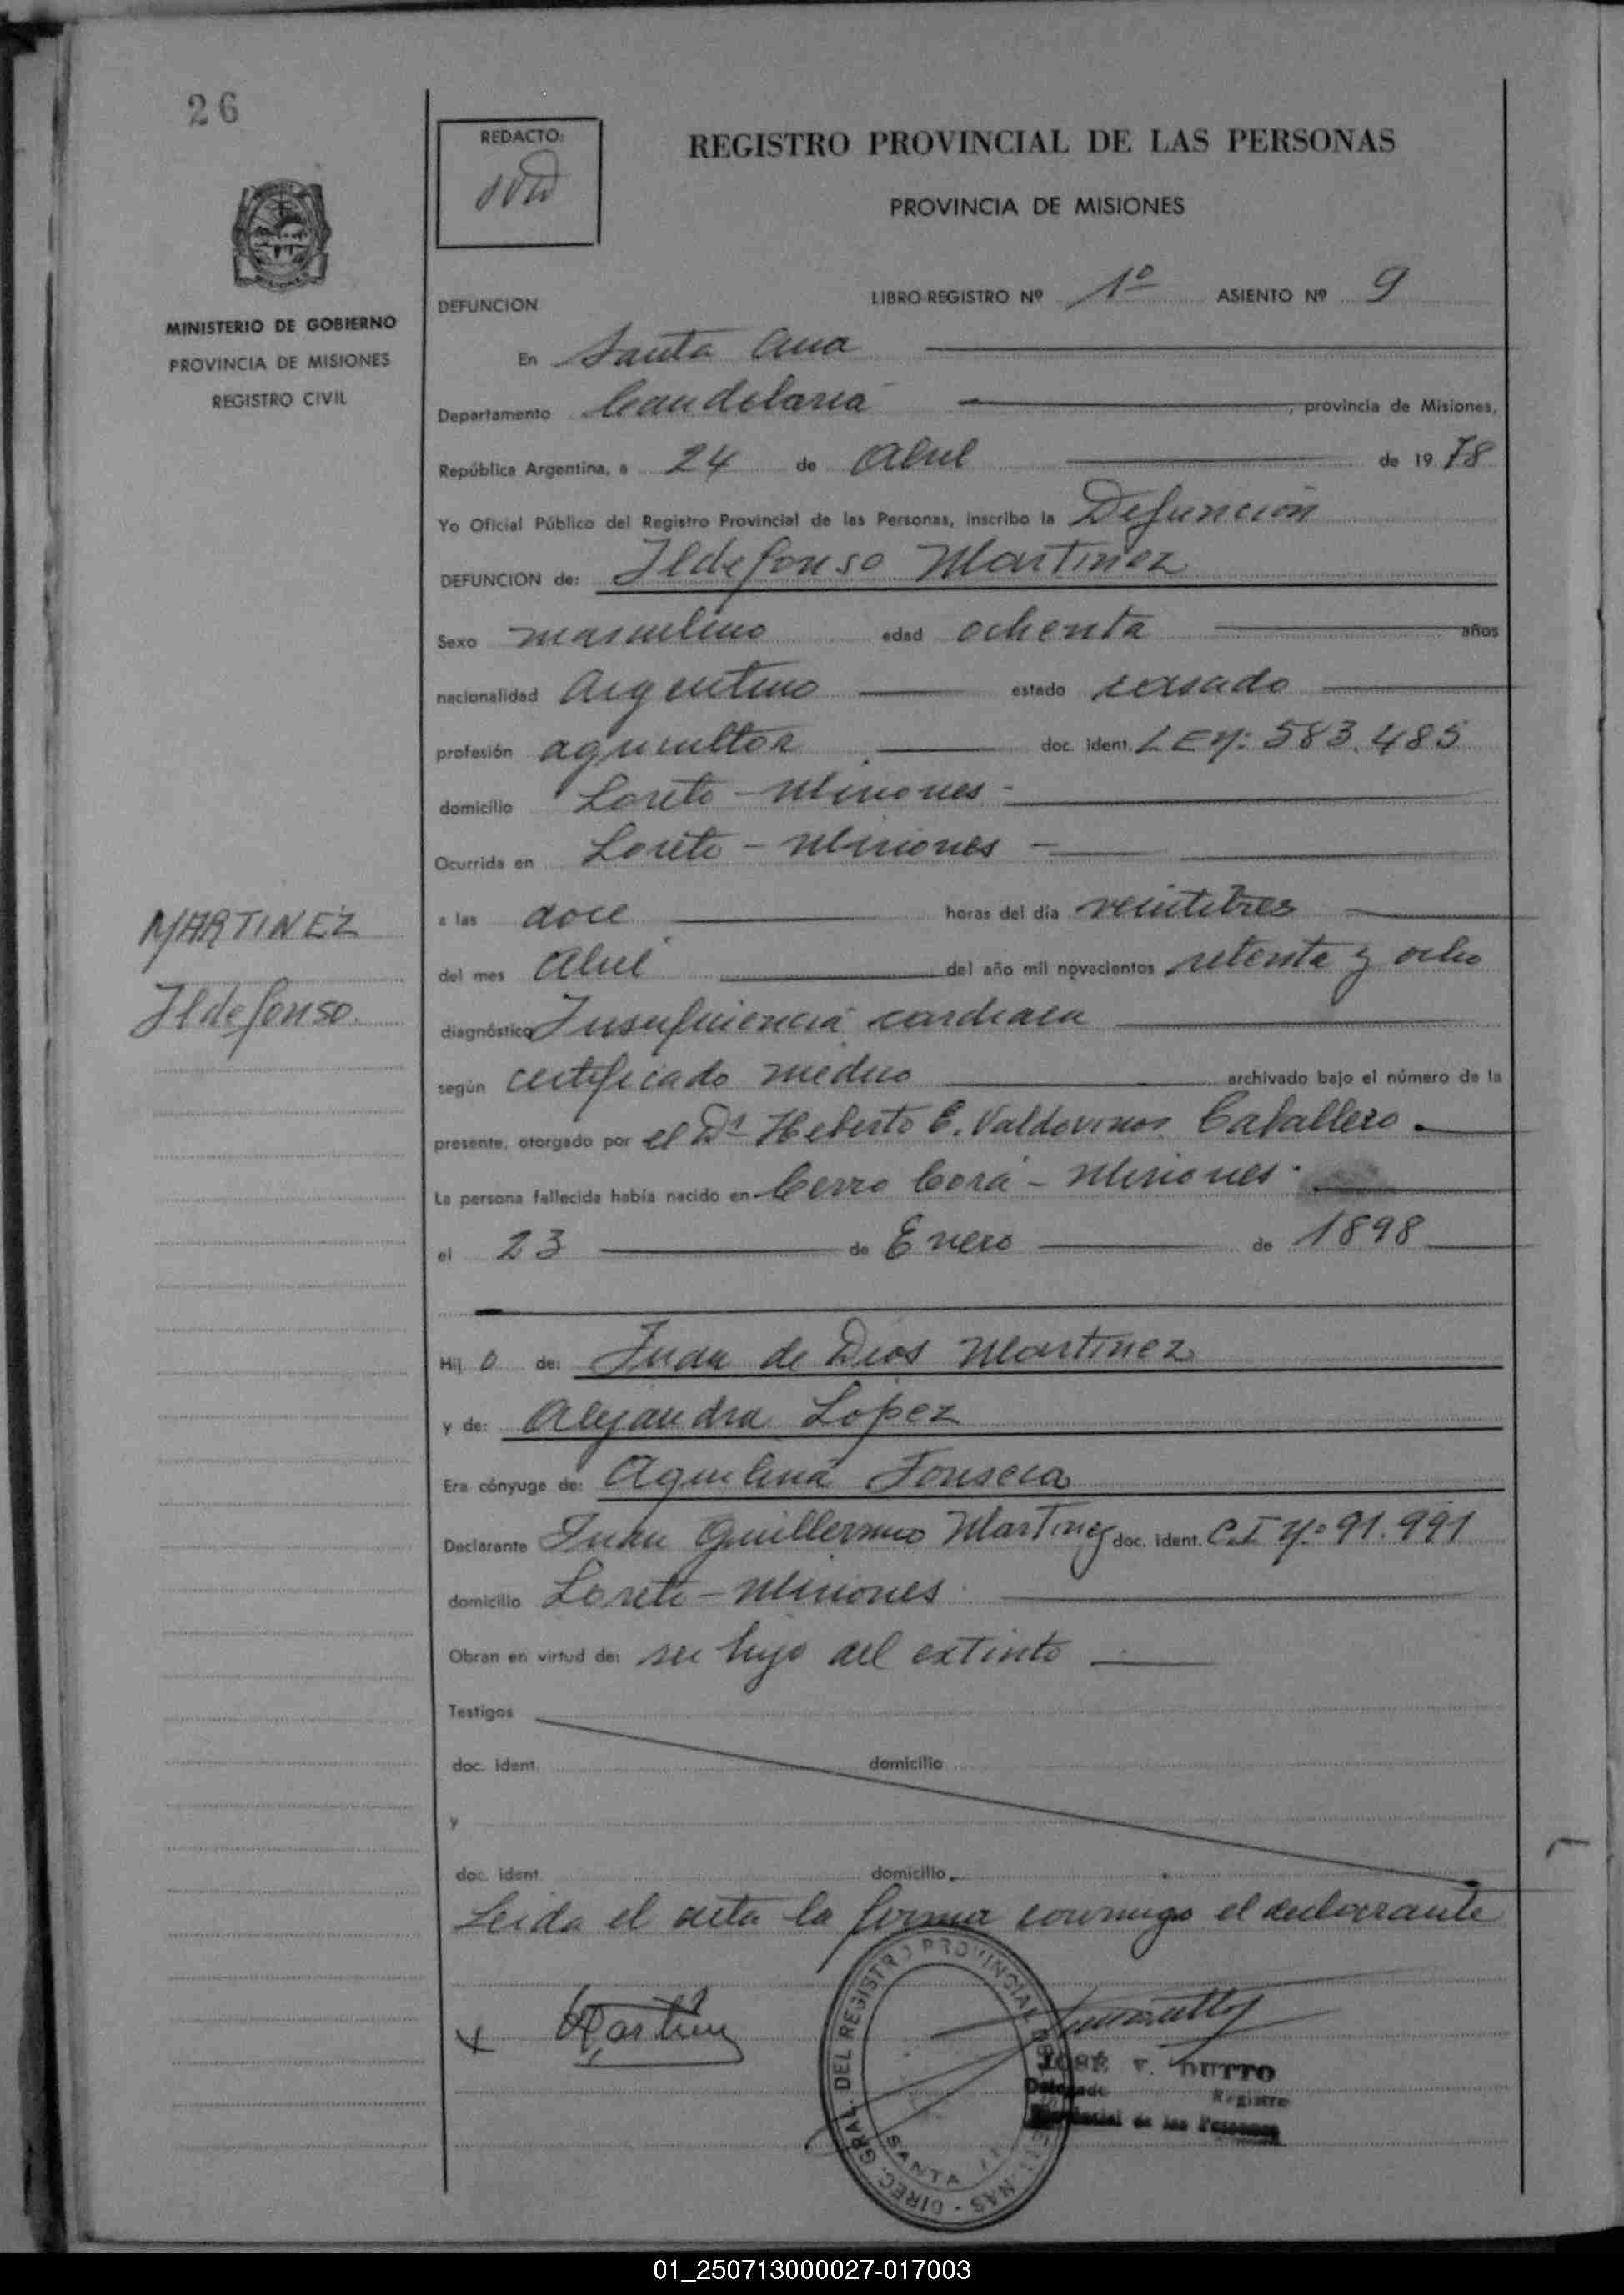 26
REDACTO:
REGISTRO PROVINCIAL DE LAS PERSONAS
PROVINCIA DE MISIONES
MINISTERIO DE GOBIERNO
PROVINCIA DE MISIONES
REGISTRO CIVIL
DEFUNCION
LIBRO-REGISTRO Nº 1º ASIENTO Nº 9
En Santa Ana
Departamento Candelaria, provincia de Misiones,
República Argentina, a 24 de Abril de 1978
Yo Oficial Público del Registro Provincial de las Personas, inscribo la Defuncion
DEFUNCION de: Ildefonso Martinez
Sexo masculino edad ochenta años
nacionalidad argentino estado casado
profesión agricultor doc. ident. L E Nº: 583.485
domicilio Loreto - Misiones -
Ocurrida en Loreto - Misiones -
a las doce horas del día veintitres
del mes Abril del año mil novecientos setenta y ocho
MARTINEZ
Ildefonso.
diagnóstico Insuficiencia cardiaca
según certificado medico archivado bajo el número de la
presente, otorgado por el Dr Heberto E. Valdovinos Caballero.
La persona fallecida había nacido en Cerro Corá - Misiones.
el 23 de Enero de 1898
Hij o de: Juan de Dios Martinez
y de: Alejandra Lopez
Era cónyuge de: Aquilina Fonseca
Declarante Juan Guillermo Martinez doc. ident. C.I Nº 91.991
domicilio Loreto - Misiones
Obran en virtud de: ser hijo del extinto
Testigos
doc. ident. domicilio
y
doc. ident. domicilio
Leida el acta la firma conmigo el declarante
DIREC. GRAL. DEL REGISTRO PROVINCIAL
SANTA
x Martinez
JOSÉ V. DUTTO
Delegado Registro
Provincial de las Personas
01_250713000027-017003